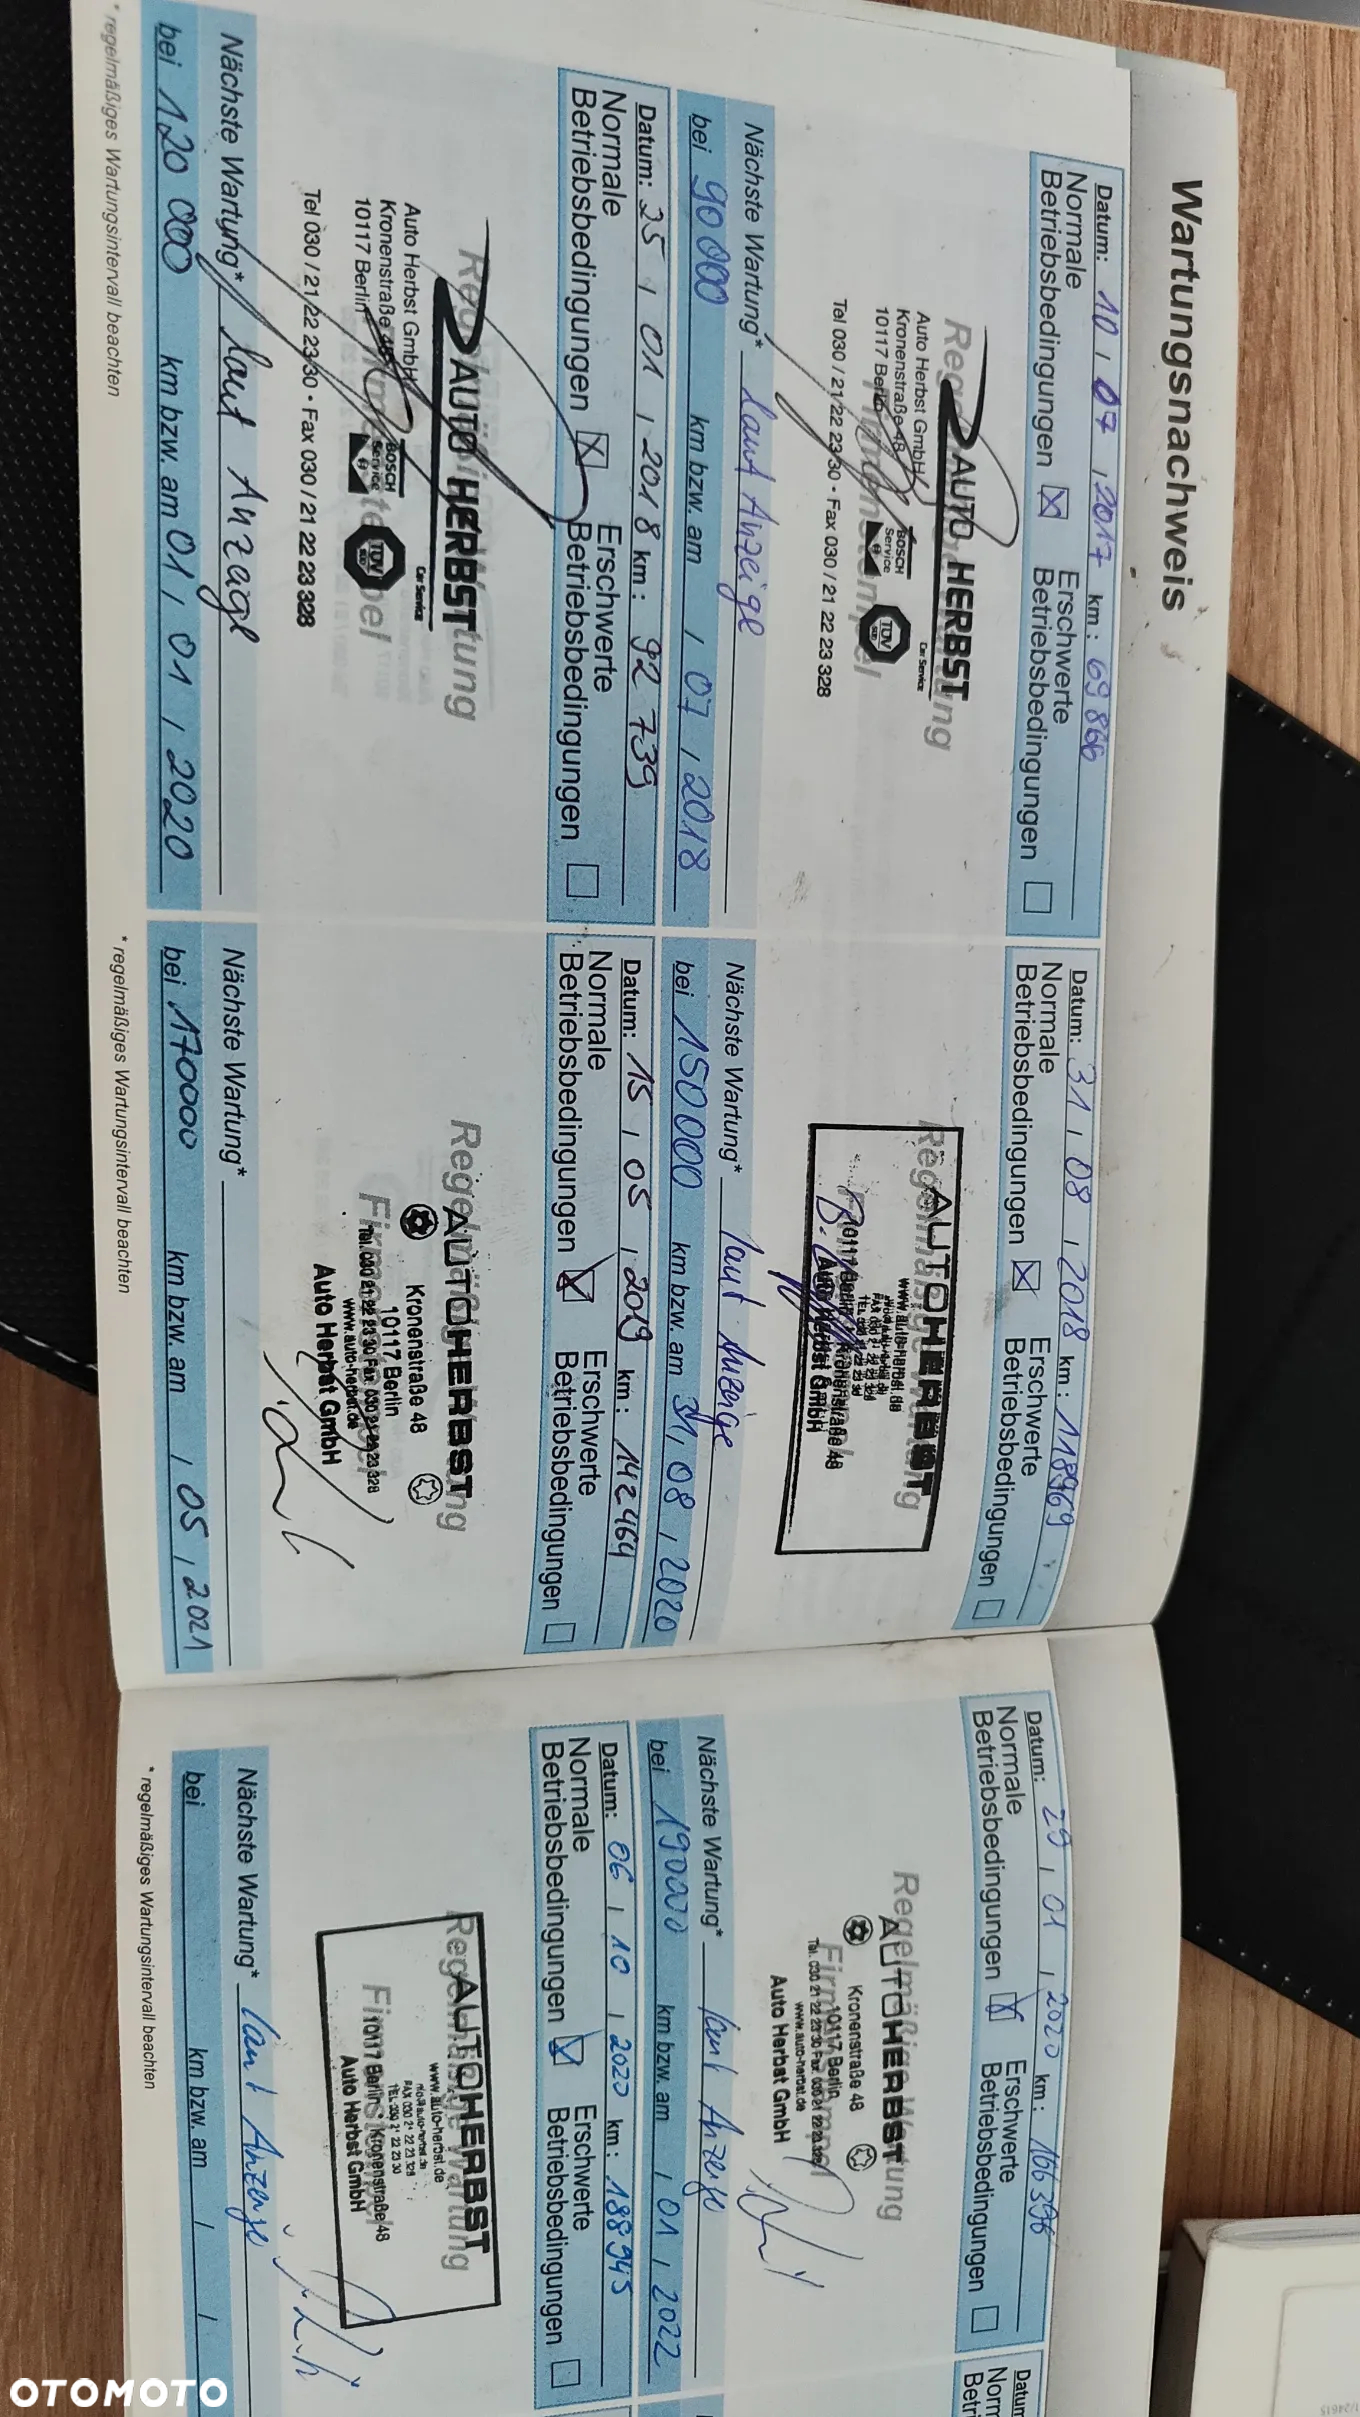 Wartungsnachweis
Datum: 10 / 07 / 2017 km: 69 866
Normale Erschwerte
Betriebsbedingungen ☒ Betriebsbedingungen ☐
AUTO HERBST
Car Service
Auto Herbst GmbH
Kronenstraße 48
10117 Berlin
BOSCH
Service
TÜV
Tel 030 / 21 22 23 30 • Fax 030 / 21 22 23 328
Nächste Wartung* laut Anzeige
bei 90 000 km bzw. am / 07 / 2018
Datum: 25 / 01 / 2018 km: 92 739
Normale Erschwerte
Betriebsbedingungen ☒ Betriebsbedingungen ☐
AUTO HERBST
Car Service
Auto Herbst GmbH
Kronenstraße 48
10117 Berlin
BOSCH
Service
TÜV
Tel 030 / 21 22 23 30 • Fax 030 / 21 22 23 328
Nächste Wartung* laut Anzage
bei 120 000 km bzw. am 01 / 01 / 2020
* regelmäßiges Wartungsintervall beachten
Datum: 31 / 08 / 2018 km: 118969
Normale Erschwerte
Betriebsbedingungen ☒ Betriebsbedingungen ☐
Regelmäßige Wartung
AUTOHERBST
www.auto-herbst.de
10117 Berlin, Kronenstraße 48
Auto Herbst GmbH
Nächste Wartung* laut Anzeige
bei 150 000 km bzw. am 31 / 08 / 2020
Datum: 15 / 05 / 2019 km: 142464
Normale Erschwerte
Betriebsbedingungen ☒ Betriebsbedingungen ☐
Regelmäßige Wartung
AUTOHERBST
Kronenstraße 48
10117 Berlin
Tel. 030 21 22 23 30 Fax 030 21 22 23 328
www.auto-herbst.de
Auto Herbst GmbH
Nächste Wartung*
bei 170000 km bzw. am / 05 / 2021
* regelmäßiges Wartungsintervall beachten
Datum: 29 / 01 / 2020 km: 166396
Normale Erschwerte
Betriebsbedingungen ☒ Betriebsbedingungen ☐
Regelmäßige Wartung
AUTOHERBST
Kronenstraße 48
Firmenstempel
10117 Berlin
Tel. 030 21 22 23 30 Fax 030 21 22 23 328
www.auto-herbst.de
Auto Herbst GmbH
Nächste Wartung* laut Anzeige
bei 190000 km bzw. am / 01 / 2022
Datum: 06 / 10 / 2020 km: 188945
Normale Erschwerte
Betriebsbedingungen ☒ Betriebsbedingungen ☐
Regelmäßige Wartung
AUTOHERBST
www.auto-herbst.de
FAX 030 21 22 23 328
TEL 030 21 22 23 30
10117 Berlin, Kronenstraße 48
Auto Herbst GmbH
Nächste Wartung* laut Anzeige
bei km bzw. am / /
* regelmäßiges Wartungsintervall beachten
Datum
Norm
Betri
OTOMOTO